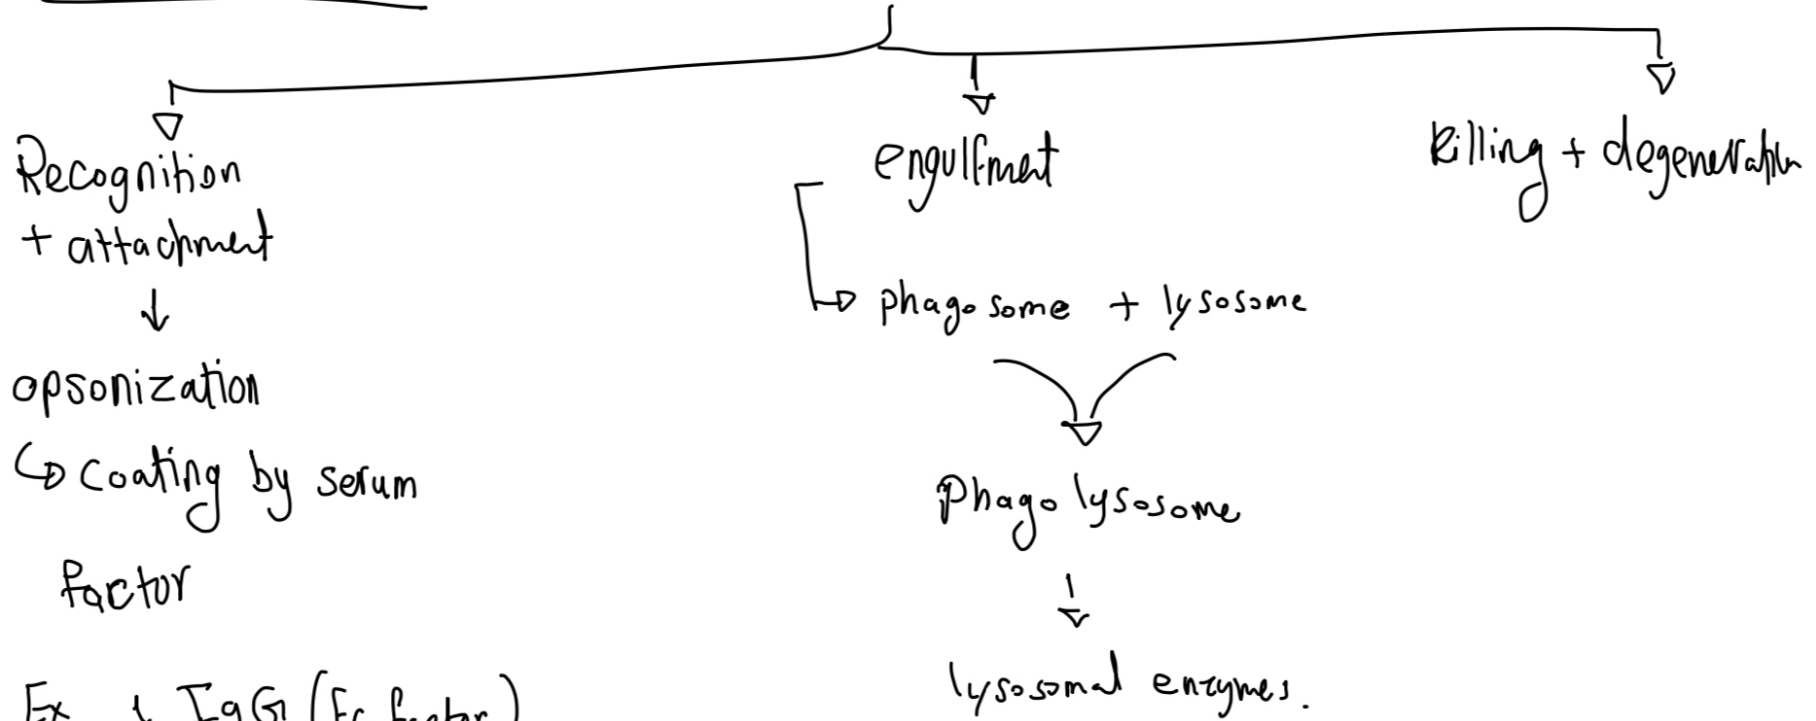 Recognition
+ attachment
opsonization
coating by serum
factor
Ex 1 IgG (Fc factor)
engulfment
phagosome + lysosome
phagolysosome
lysosomal enzymes.
killing + degeneration